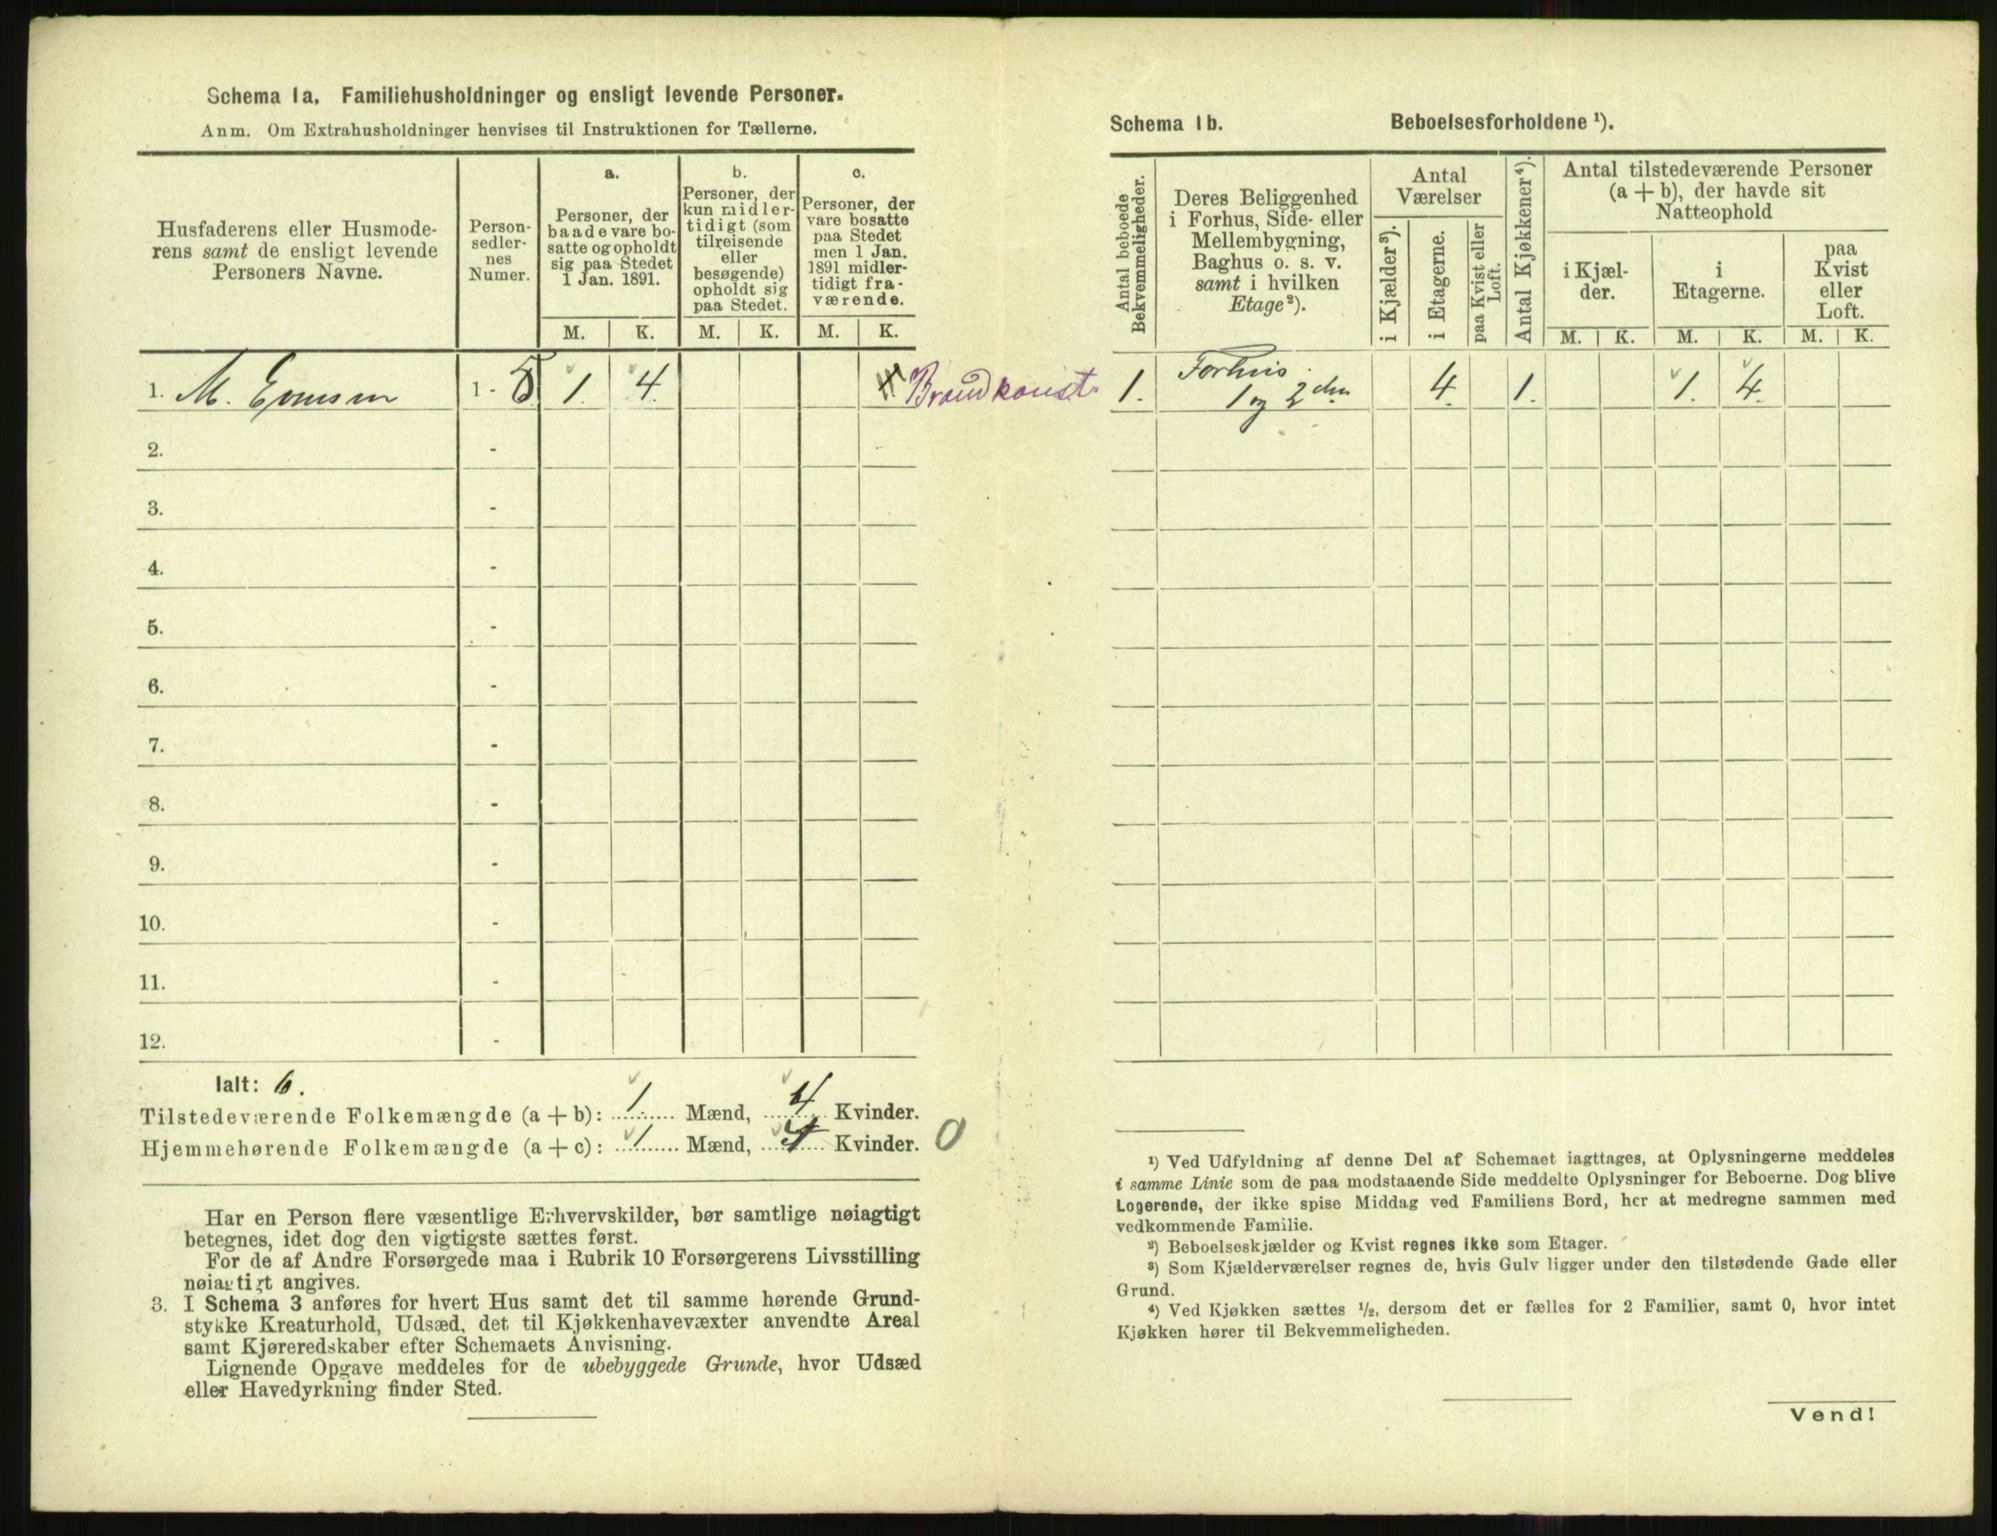 Schema 1a. Familiehusholdninger og ensligt levende Personer.
Anm. Om Extrahusholdninger henvises til Instruktionen for Tællerne.
Husfaderens eller Husmode-
rens samt de ensligt levende
Personers Navne.
Person-
sedler-
nes
Numer.
a.
Personer, der
baade vare bo-
satte og opholdt
sig paa Stedet
1 Jan. 1891.
b.
Personer, der
kun midler-
tidigt (som
tilreisende
eller
besøgende)
opholdt sig
paa Stedet.
c.
Personer, der
vare bosatte
paa Stedet
men 1 Jan.
1891 midler-
tidigt fra-
værende.
M. K. M. K. M. K.
1. M. 1 - 5 1. 4.
2. -
3. -
4. -
5. -
6. -
7. -
8. -
9. -
10. -
11. -
12. -
Ialt: 6.
Tilstedeværende Folkemængde (a + b): 1 Mænd, 4 Kvinder.
Hjemmehørende Folkemængde (a + c): 1 Mænd, Kvinder. 0
Har en Person flere væsentlige Erhvervskilder, bør samtlige nøiagtigt
betegnes, idet dog den vigtigste sættes først.
For de af Andre Forsørgede maa i Rubrik 10 Forsørgerens Livsstilling
nøiagtigt angives.
3. I Schema 3 anføres for hvert Hus samt det til samme hørende Grund-
stykke Kreaturhold, Udsæd, det til Kjøkkenhavevæxter anvendte Areal
samt Kjøreredskaber efter Schemaets Anvisning.
Lignende Opgave meddeles for de ubebyggede Grunde, hvor Udsæd
eller Havedyrkning finder Sted.
Schema 1b. Beboelsesforholdene ¹).
Antal beboede
Bekvemmeligheder.
Deres Beliggenhed
i Forhus, Side- eller
Mellembygning,
Baghus o. s. v.
samt i hvilken
Etage²).
Antal
Værelser
i Kjælder³).
i Etagerne.
paa Kvist eller
Loft.
Antal Kjøkkener⁴).
Antal tilstedeværende Personer
(a + b), der havde sit
Natteophold
i Kjæl-
der.
i
Etagerne.
paa
Kvist
eller
Loft.
M. K. M. K. M. K.
1. Forhus.
1 og 2den 4. 1. 1. 4.
¹) Ved Udfyldning af denne Del af Schemaet iagttages, at Oplysningerne meddeles
i samme Linie som de paa modstaaende Side meddelte Oplysninger for Beboerne. Dog blive
Logerende, der ikke spise Middag ved Familiens Bord, her at medregne sammen med
vedkommende Familie.
²) Beboelseskjælder og Kvist regnes ikke som Etager.
³) Som Kjælderværelser regnes de, hvis Gulv ligger under den tilstødende Gade eller
Grund.
⁴) Ved Kjøkken sættes ½, dersom det er fælles for 2 Familier, samt 0, hvor intet
Kjøkken hører til Bekvemmeligheden.
Vend!